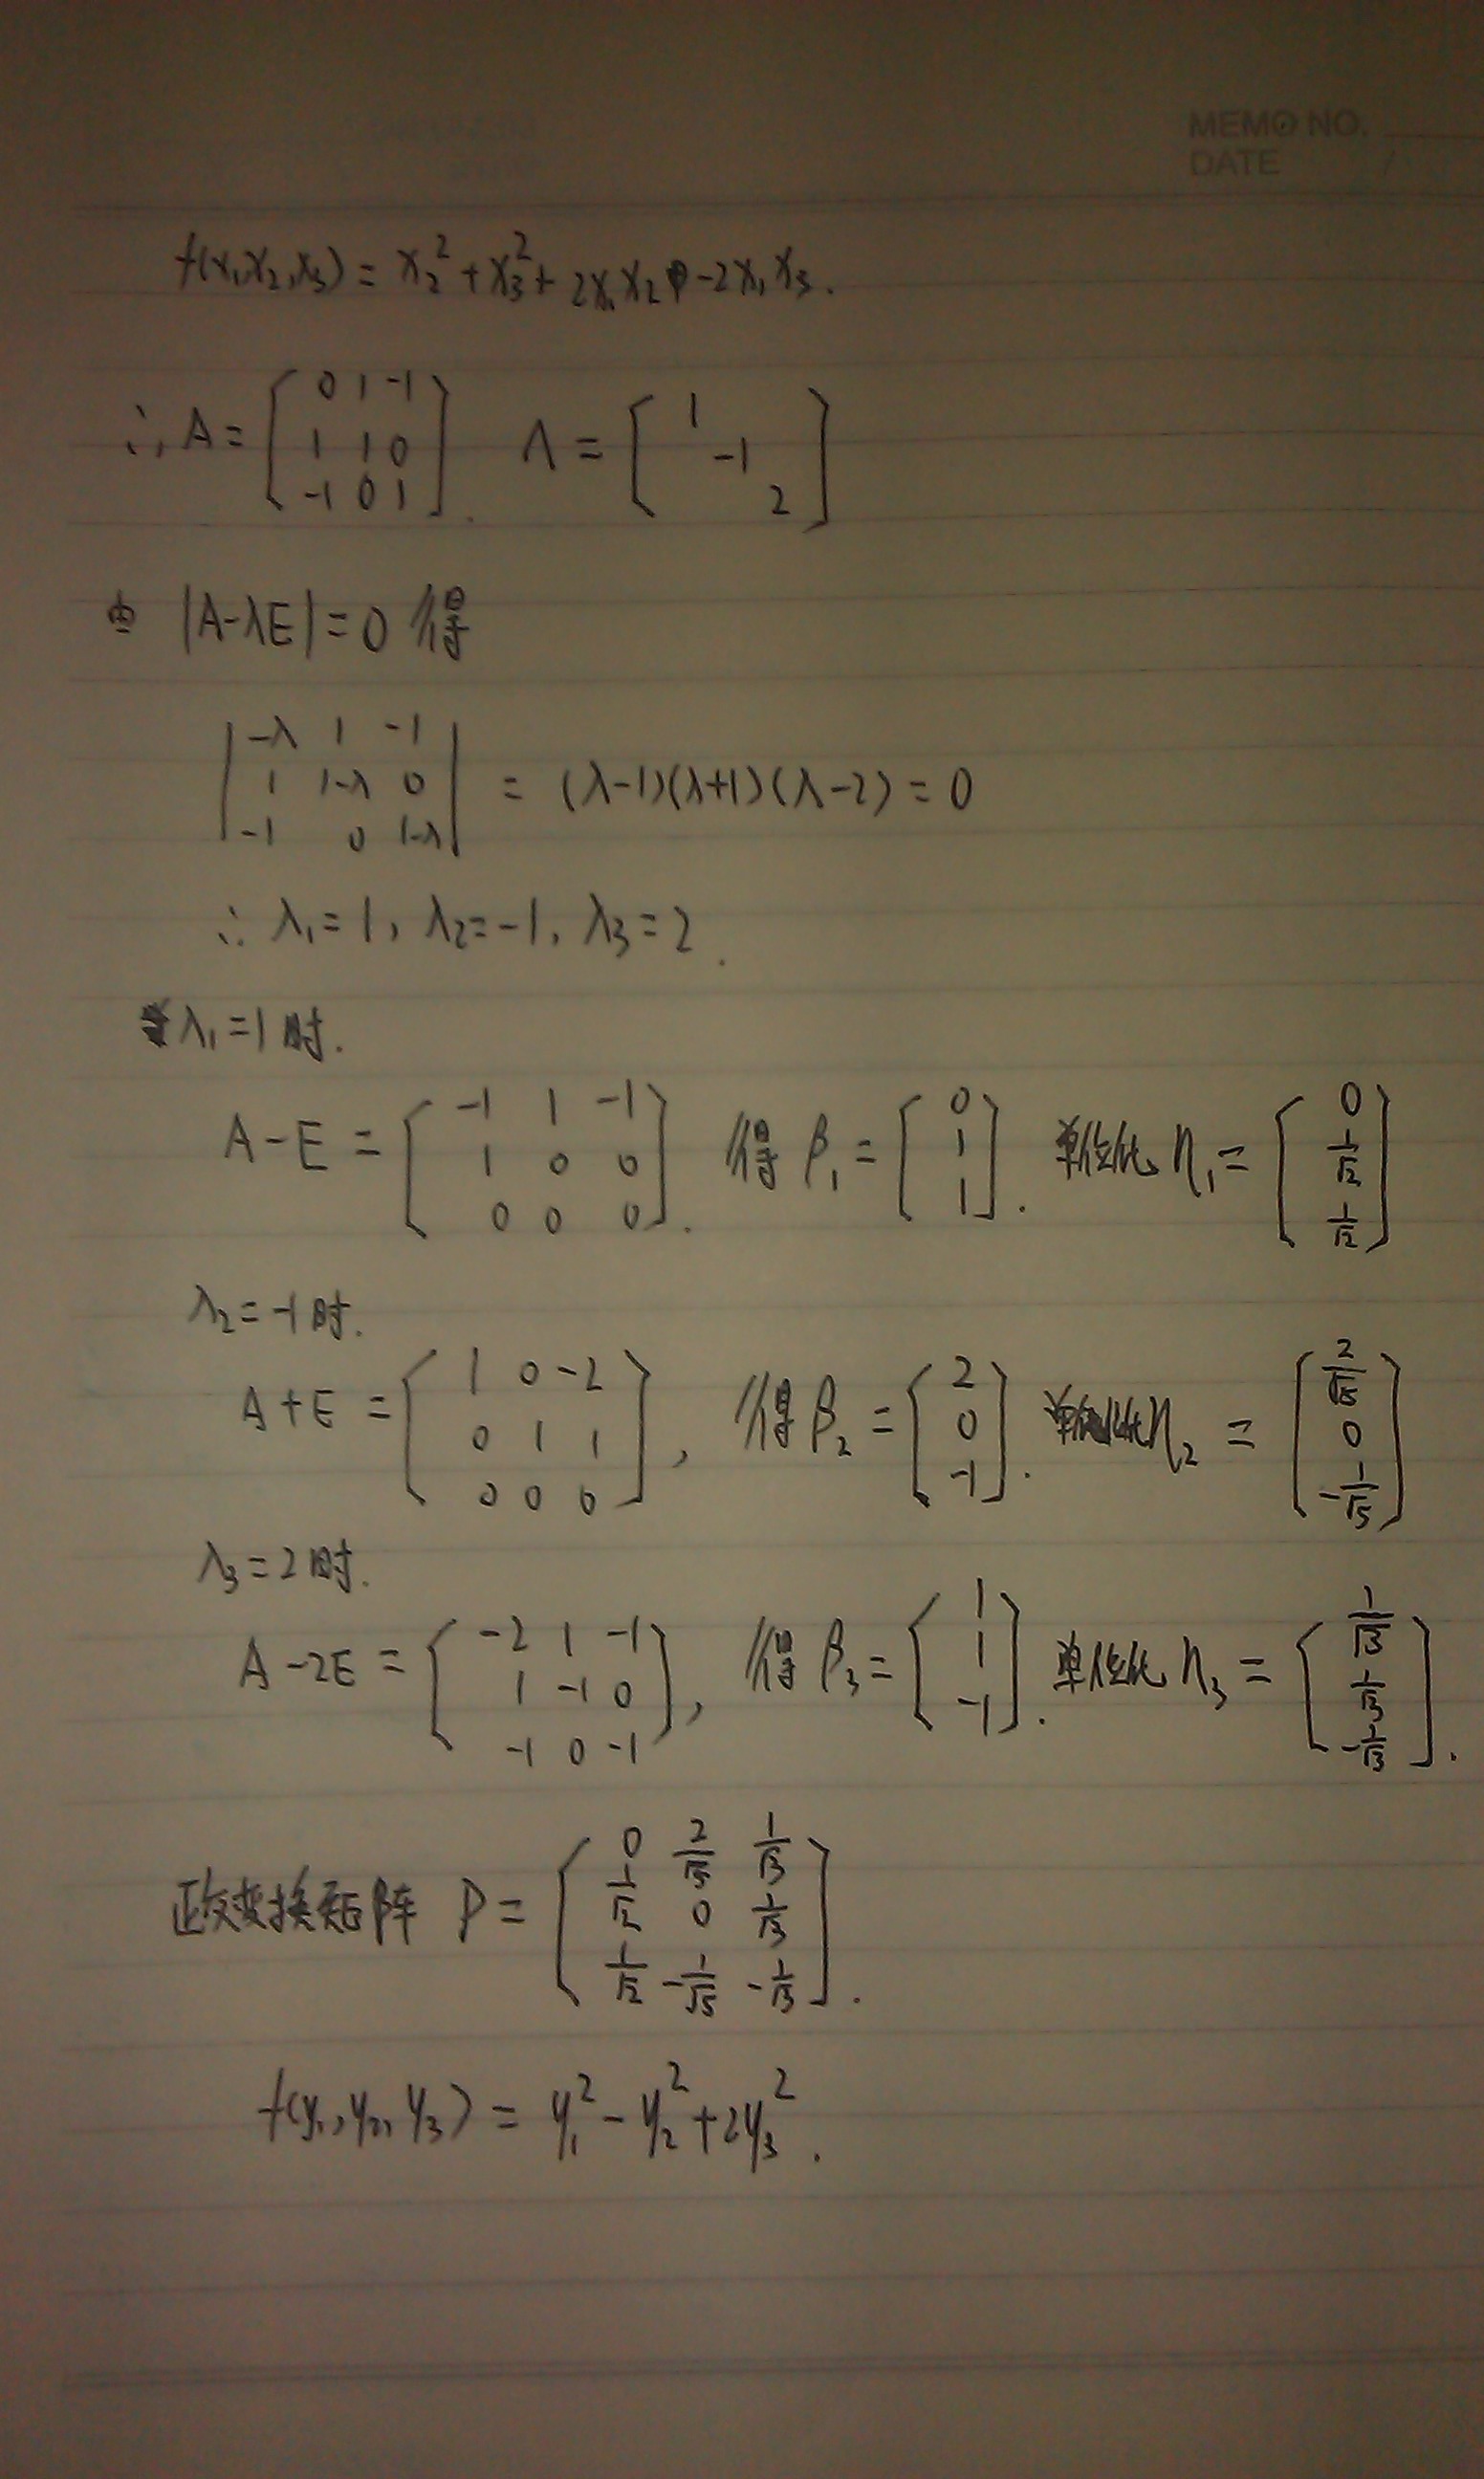 MEMO NO.
DATE /
f(x₁,x₂,x₃) = x₂² + x₃² + 2x₁x₂ - 2x₁x₃.
∴ A = [0 1 -1; 1 1 0; -1 0 1]. Λ = [1; -1; 2]
由 |A-λE| = 0 得
|-λ 1 -1; 1 1-λ 0; -1 0 1-λ| = (λ-1)(λ+1)(λ-2) = 0
∴ λ₁=1, λ₂=-1, λ₃=2.
λ₁=1时.
A-E = [-1 1 -1; 1 0 0; 0 0 0]. 得 β₁ = [0; 1; 1]. 单位化 η₁ = [0; 1/√2; 1/√2]
λ₂=-1时.
A+E = [1 0 -2; 0 1 1; 0 0 0], 得 β₂ = [2; 0; -1]. 单位化 η₂ = [2/√5; 0; -1/√5]
λ₃=2时.
A-2E = [-2 1 -1; 1 -1 0; -1 0 -1], 得 β₃ = [1; 1; -1]. 单位化 η₃ = [1/√3; 1/√3; -1/√3].
正交变换矩阵 P = [0 2/√5 1/√3; 1/√2 0 1/√3; 1/√2 -1/√5 -1/√3].
f(y₁,y₂,y₃) = y₁² - y₂² + 2y₃².